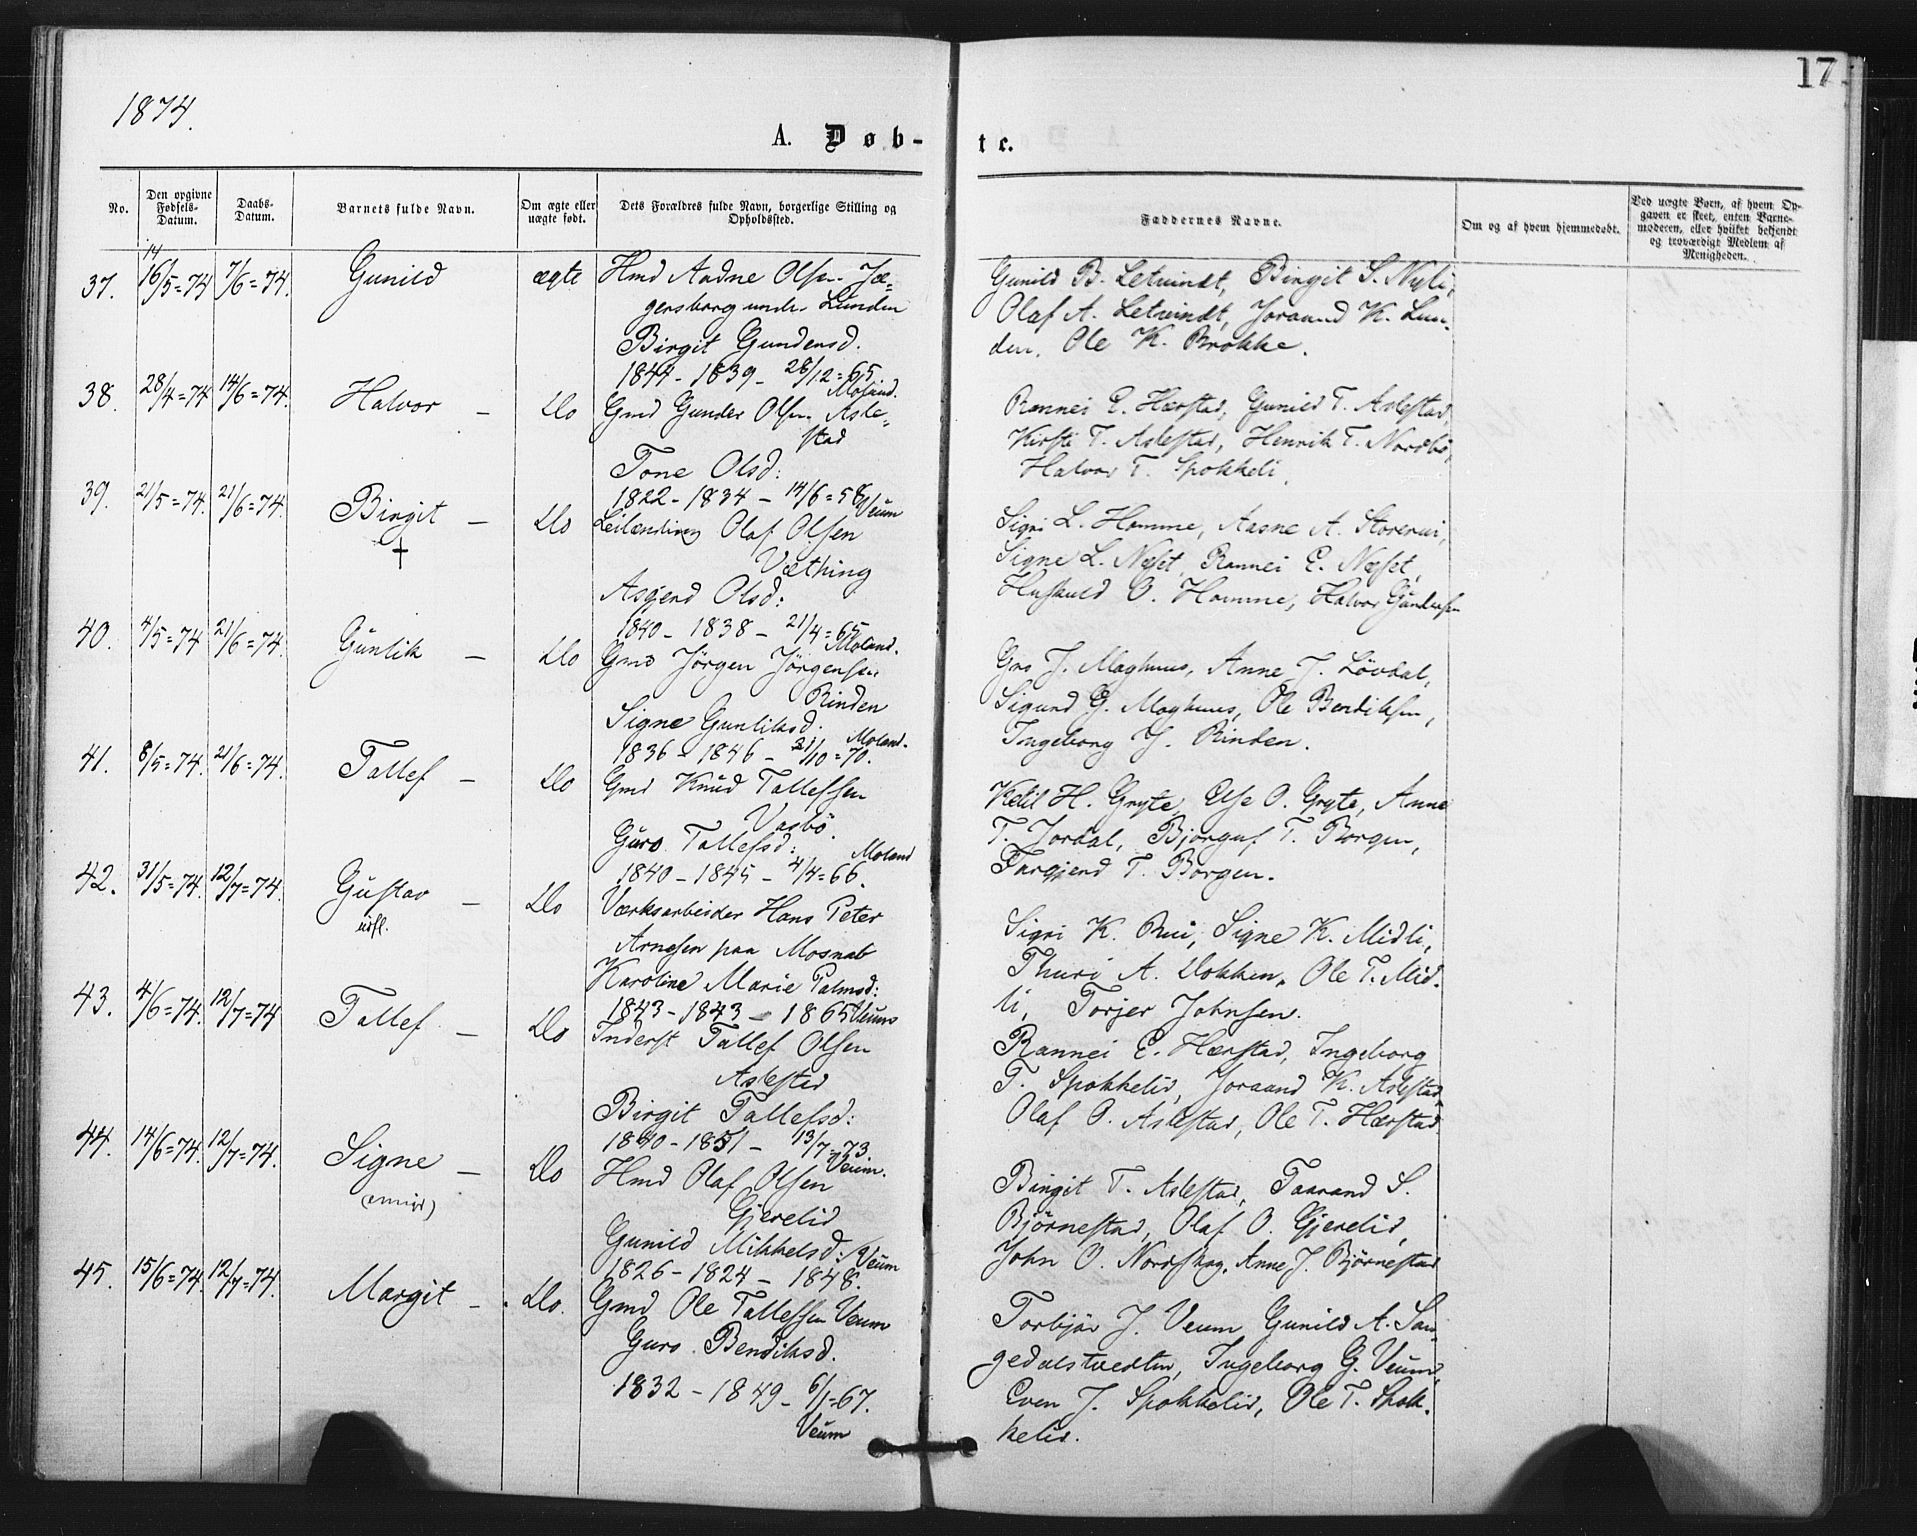 17
1874.
A. Døb-
te.
No.
Den opgivne Fødsels-Datum.
Daabs-Datum.
Barnets fulde Navn.
Om ægte eller uægte født.
Dets Forældres fulde Navn, borgerlige Stilling og Opholdssted.
Faddernes Navne.
Om og af hvem hjemmedøbt.
Ved uægte Børn, af hvem Op-
gaven er skeet, enten Barne-
moderen, eller hvilket bekjendt
og troværdigt Medlem af
Menigheden.
14
37. 16/5=74 7/6=74. Gunild ægte Hmd Aadne Olsen Jæ-
gersborg under Lunden
Birgit Gundersd.
1844 - 1839 - 28/12=65
Moland.
Gunild B. Letvindt, Birgit S. Nyli,
Olaf A. Letvindt, Joraand K. Lun-
den, Ole K. Brokke.
38. 28/4=74 14/6=74. Halvor - Do Gmd Gunder Olsen Asle-
stad
Tone Olsd:
1822 - 1834 - 14/6=58
Veum
Rannei E. Hærstad, Gunild T. Aslestad,
Kirsti T. Aslestad, Henrik T. Nordbö,
Halvor T. Spokkeli.
39. 21/5=74. 21/6=74. Birgit - Do Leilænding Olaf Olsen
†
Væthing
Asgjerd Olsd:
1840 - 1838 - 21/4=65
Moland.
Sigri L. Homme, Aasne A. Storerui,
Signe L. Næset, Rannei E. Næset,
Huskuld O. Homme, Halvor Gundersen
40. 4/5=74 21/6=74. Gunlik - Do Gmd Jörgen Jörgensen
Rinden
Signe Gunliksd.
1836 - 1846 - 21/10=70.
Moland.
Gro J. Maghuus, Anne J. Lövdal,
Sigurd G. Maghuus, Ole Bendiksen,
Ingeborg J. Rinden.
41. 8/5=74. 21/6=74. Tallef - Do Gmd Knud Tallefsen
Vasbö.
Guro Tallefsd:
1840 - 1845 - 4/4=66.
Moland
Ketil H. Gryte, Else O. Gryte, Anne
T. Jordal, Bjorguf T. Borgen,
Targjerd T. Borgen.
42. 31/5=74. 12/7=74. Gustav - Do Værksarbeider Hans Peter
udfl.
Arnesen paa Mosnab
Karoline Marie Palmsd:
1843 - 1843 - 1865
Veum
Sigri K. Rui, Signe K. Midli,
Thuri A. Dokken, Ole T. Mid-
li, Torjer Johnsen.
43. 4/6=74. 12/7=74 Tallef - Do Inderst Tallef Olsen
Aslestad
Birgit Tallefsd:
1840 - 1851 - 13/7=73.
Veum.
Rannei E. Hærstad, Ingeborg
T. Spokkelid, Joraand K. Aslestad,
Olaf O. Aslestad, Ole T. Hærstad.
44. 14/6=74. 12/7=74. Signe - Do Hmd Olaf Olsen
Gjerelid
Gunild Mikkelsd:
1826 - 1824 - 1848.
Veum
Birgit T. Aslestad, Taarand S.
Björnestad, Olaf O. Gjerelid,
John O. Nordskog, Anne J. Björnestad
45. 15/6=74. 12/7=74. Margit - Do. Gmd Ole Tallefsen Veum
Guro Bendiksd.
1832 - 1849 - 6/1=67.
Veum
Torbjör J. Veum, Gunild A. San-
gedalstvedten, Ingeborg G. Veum,
Even J. Spokkelid, Ole T. Spok-
kelid.